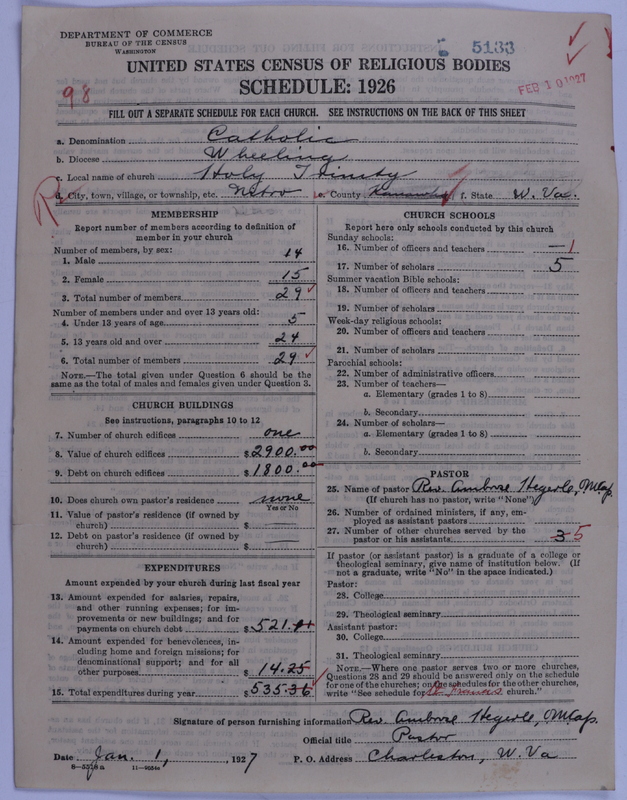 DEPARTMENT OF COMMERCE
BUREAU OF THE CENSUS
WASHINGTON
5133
UNITED STATES CENSUS OF RELIGIOUS BODIES
SCHEDULE: 1926
98
FEB 10 1927
FILL OUT A SEPARATE SCHEDULE FOR EACH CHURCH. SEE INSTRUCTIONS ON THE BACK OF THIS SHEET
a. Denomination Catholic
b. Diocese Wheeling
c. Local name of church Holy Trinity
d. City, town, village, or township, etc. Nitro e. County Kanawha f. State W. Va.
MEMBERSHIP
Report number of members according to definition of member in your church
Number of members, by sex:
1. Male 14
2. Female 15
3. Total number of members 29
Number of members under and over 13 years old:
4. Under 13 years of age 5
5. 13 years old and over 24
6. Total number of members 29
NOTE.—The total given under Question 6 should be the same as the total of males and females given under Question 3.
CHURCH BUILDINGS
See instructions, paragraphs 10 to 12
7. Number of church edifices one
8. Value of church edifices $2900.00
9. Debt on church edifices $1800.00
10. Does church own pastor's residence none
Yes or No
11. Value of pastor's residence (if owned by church) $
12. Debt on pastor's residence (if owned by church) $
EXPENDITURES
Amount expended by your church during last fiscal year
13. Amount expended for salaries, repairs, and other running expenses; for improvements or new buildings; and for payments on church debt $521.
14. Amount expended for benevolences, including home and foreign missions; for denominational support; and for all other purposes $14.25
15. Total expenditures during year $535.36
CHURCH SCHOOLS
Report here only schools conducted by this church
Sunday schools:
16. Number of officers and teachers — 1
17. Number of scholars 5
Summer vacation Bible schools:
18. Number of officers and teachers
19. Number of scholars
Week-day religious schools:
20. Number of officers and teachers
21. Number of scholars
Parochial schools:
22. Number of administrative officers
23. Number of teachers—
a. Elementary (grades 1 to 8)
b. Secondary
24. Number of scholars—
a. Elementary (grades 1 to 8)
b. Secondary
PASTOR
25. Name of pastor Rev. Ambrose Hegerle, M Cap.
(If church has no pastor, write "None")
26. Number of ordained ministers, if any, employed as assistant pastors
27. Number of other churches served by the pastor or his assistants 3 5
If pastor (or assistant pastor) is a graduate of a college or theological seminary, give name of institution below. (If not a graduate, write "No" in the space indicated.)
Pastor:
28. College
29. Theological seminary
Assistant pastor:
30. College
31. Theological seminary
NOTE.—Where one pastor serves two or more churches, Questions 28 and 29 should be answered only on the schedule for one of the churches; on the schedules for the other churches, write "See schedule for St Francis church."
Signature of person furnishing information Rev. Ambrose Hegerle, M Cap.
Official title Pastor
Date Jan. 1, 1927 P. O. Address Charleston, W. Va